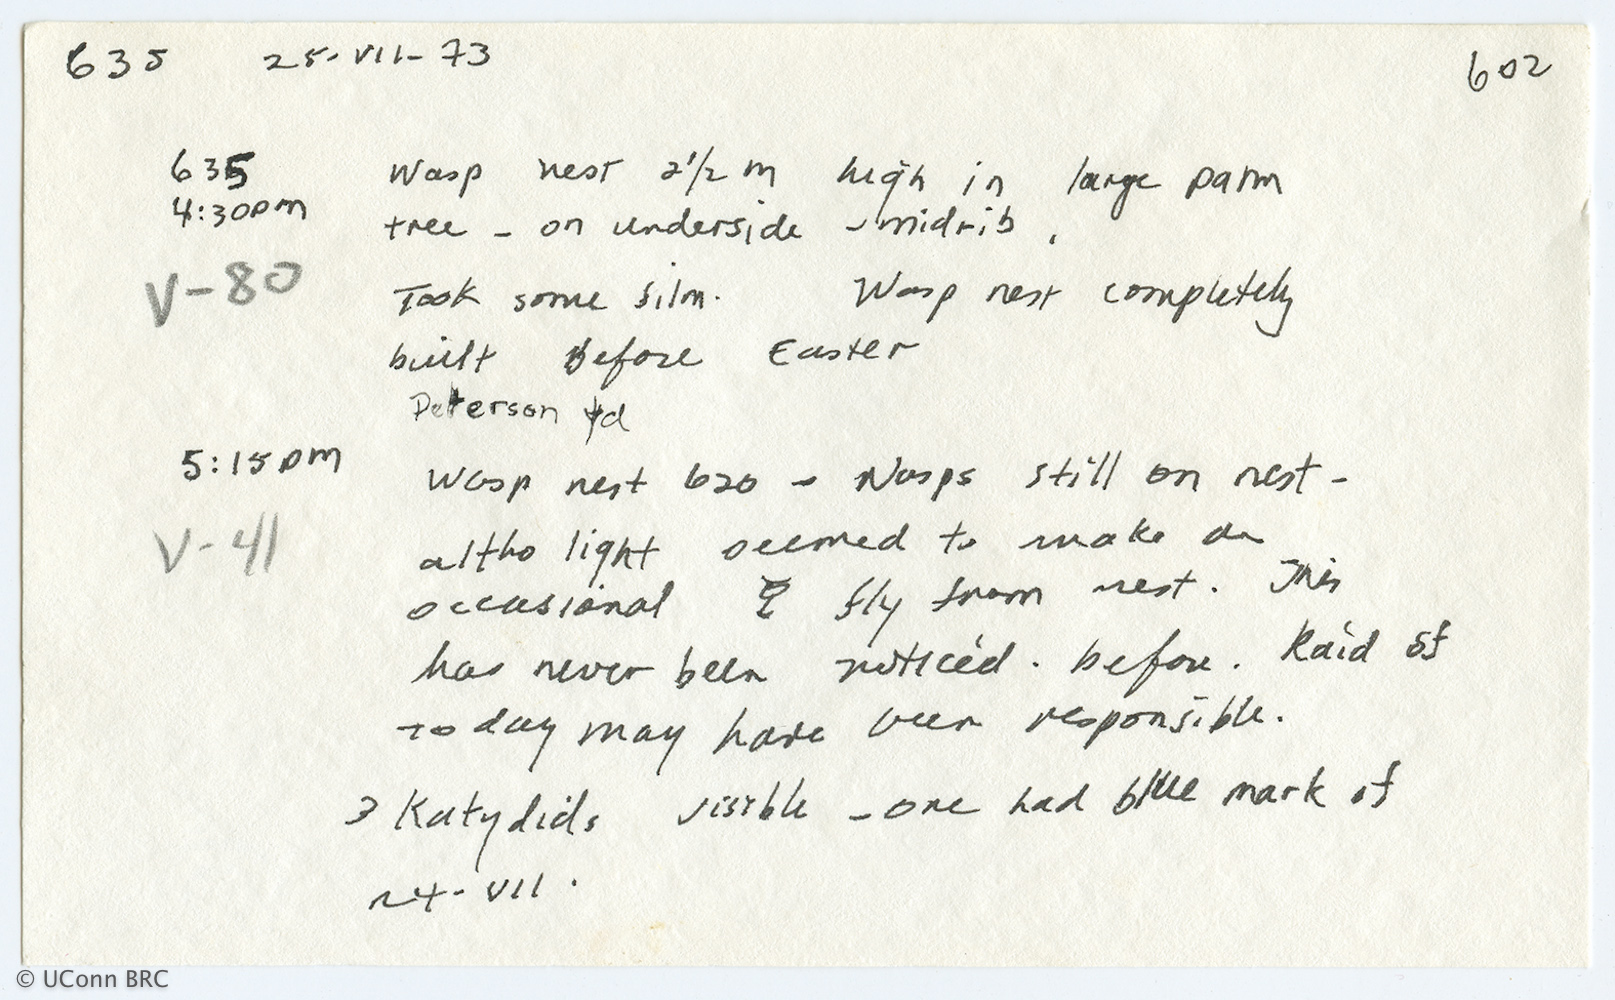 635 25-VII-73 602
635 Wasp nest 2 1/2 m high in large palm
4:30pm tree - on underside - midrib.
V-80 Took some film. Wasp nest completely
built Before Easter
Peterson yd
5:15pm Wasp nest 620 - Wasps still on nest -
V-41 altho light seemed to make an
occasional ♀ fly from nest. This
has never been noticed. before. Raid of
today may have been responsible.
3 Katydids visible - one had blue mark of
24-VII.
© UConn BRC